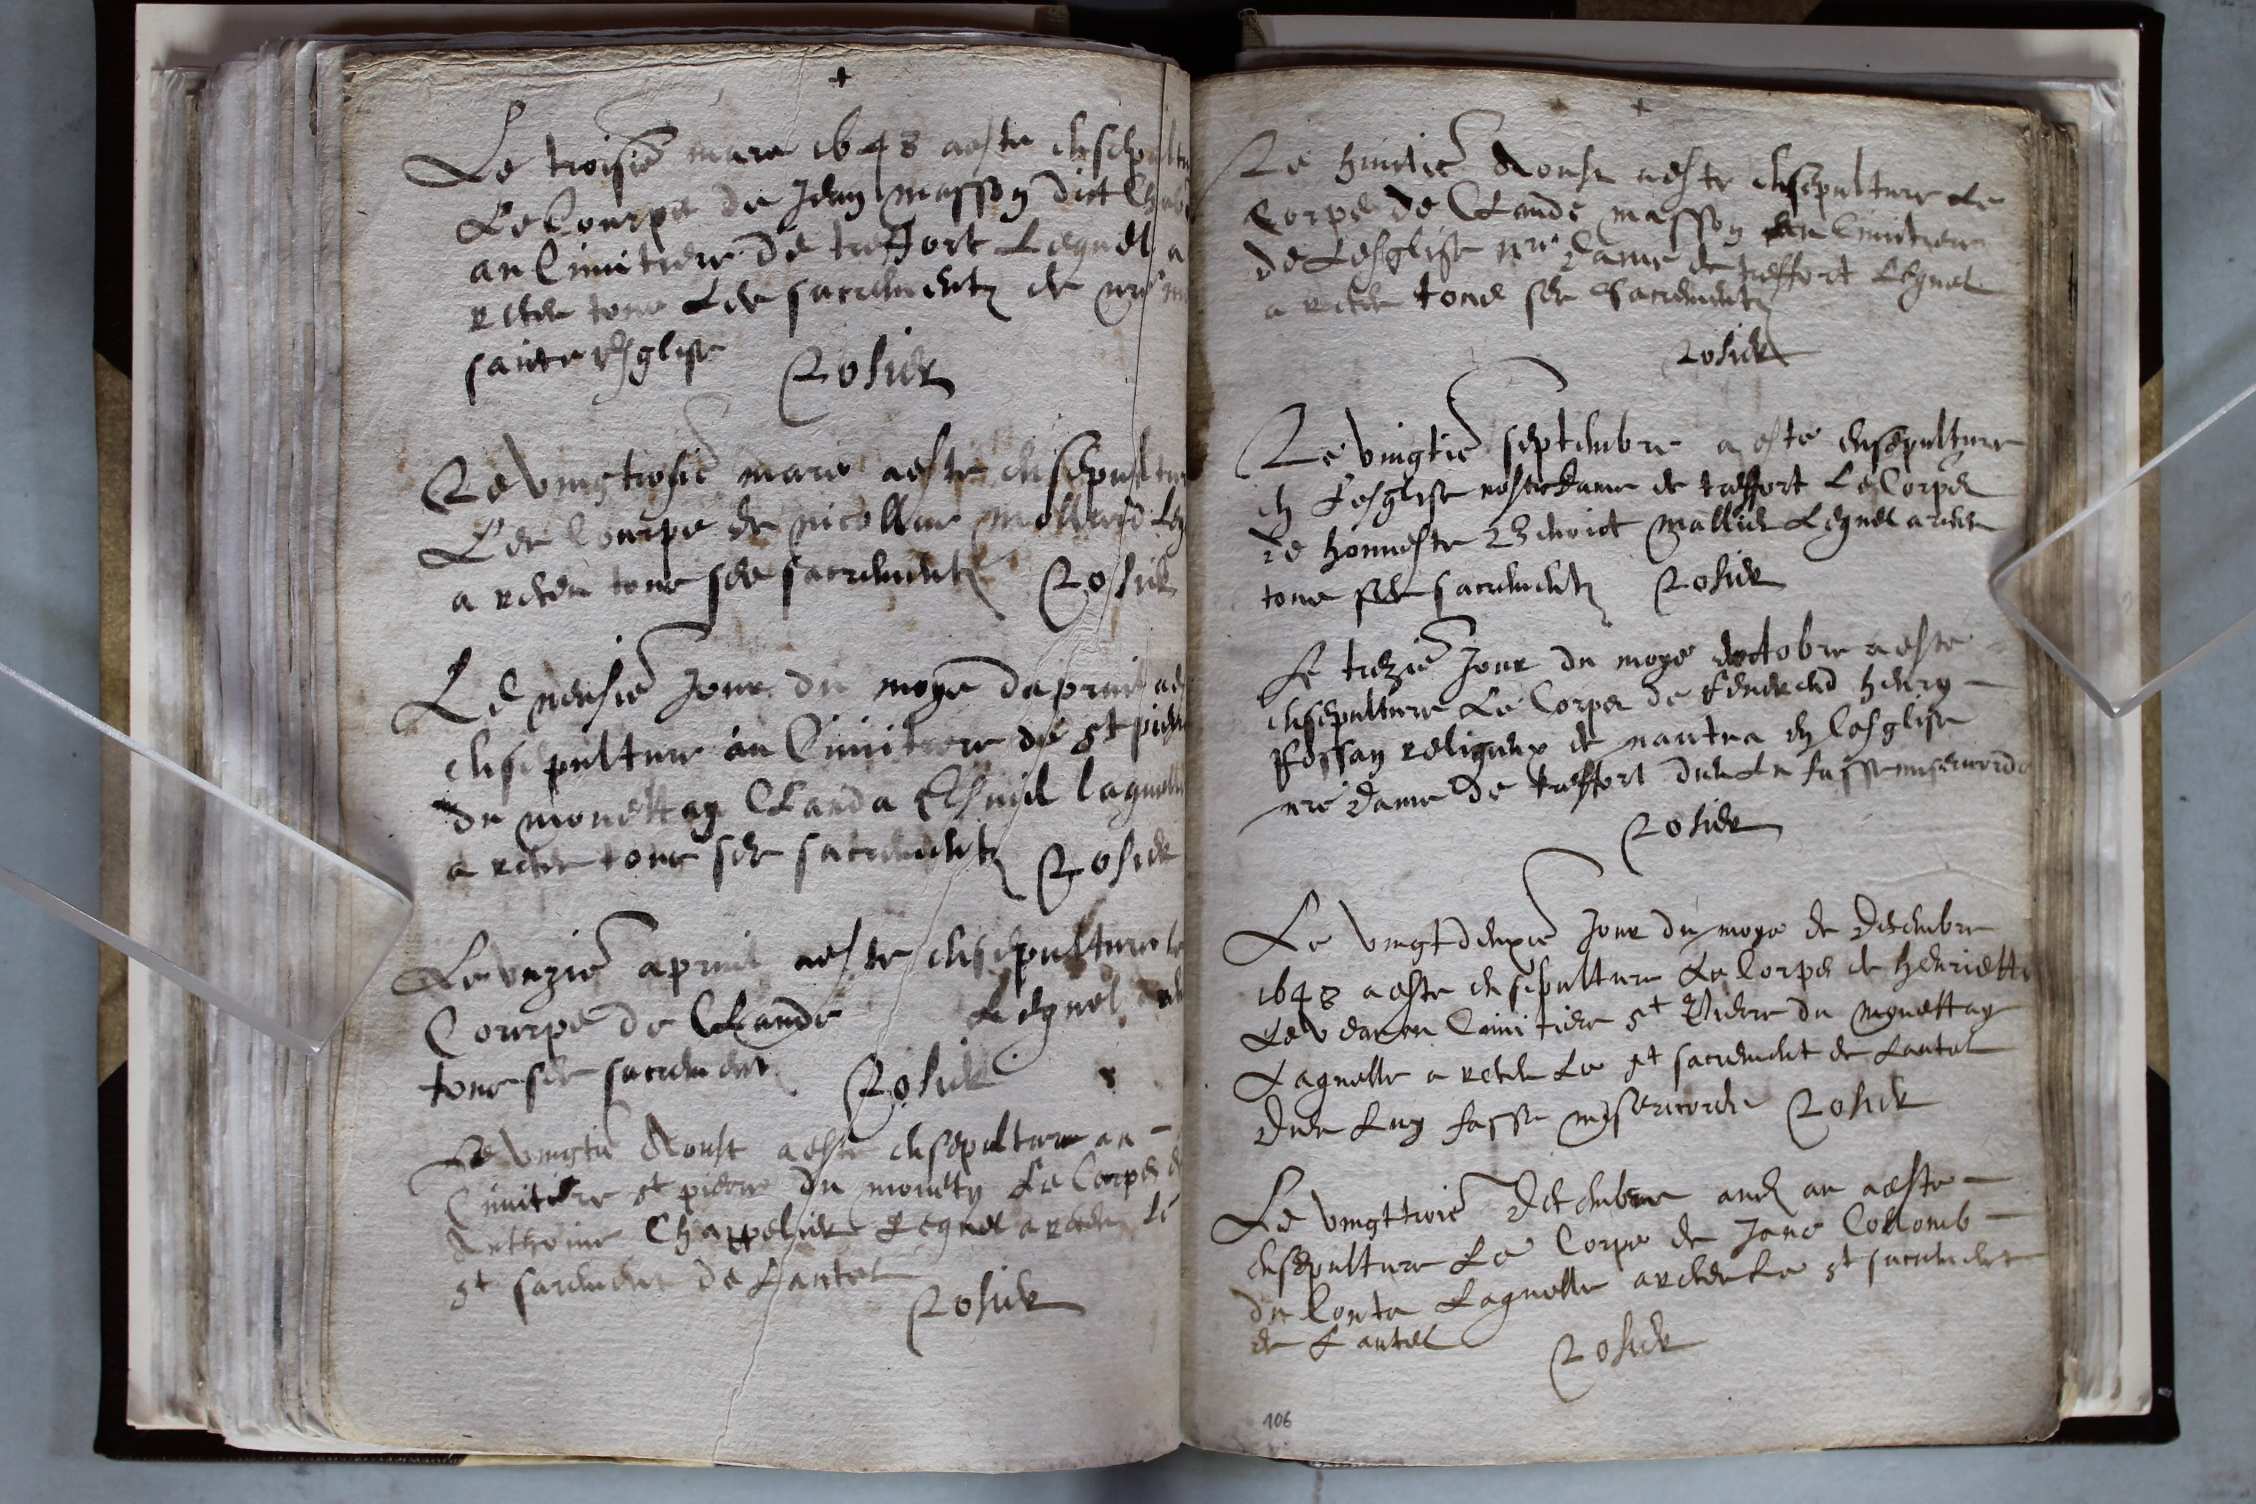 +
Le troisie mars 1648 aeste ensepultu
Le Courps de Jean masson dict
au Cimitiere de treffort Lequel a
receu tous Les sacrements de nre
saincte Esglise Rosier
Le vingtrosie mars aeste ensepultu
Le Courps de nicollas mollard Leq
a receu tous ses sacrements Rosier
Le jour du moys dapvril
ensepulture au Cimitiere de st pierre
du monettay Clauda laquelle
a receu tous ses sacrements Rosier
Le unzie apvril aeste ensepulture le
Courps de Claude Lequel
tous ses sacrement Rosier
Le vingtie Aoust aeste ensepulture au
Cimitiere st pierre du Le Corps
Anthoine Lequel a receu Le
st sacrement de Lautel
Rosier
+
Le huictie Aoust aeste ensepulture Le
Corps de Claude masson au Cimitiere
de Lesglise nre dame de treffort Lequel
a receu tous ses sacrements
Rosier
Le vingtie septembre a este ensepulture
en Lesglise nostre dame de treffort Le Corps
de honneste Benoict mallier Lequel a receu
tous ses sacrements Rosier
Le trezie Jour du moys doctobre aeste
ensepulture Le Corps de Reverend henry
religieux de nantua en Lesglise
nre dame de treffort dieu Le fasse misericorde
Rosier
Le vingtdeuxie Jour du moys de Decembre
1648 aeste ensepulture Le Corps de henriette
Cimitiere st Pierre du monettay
Laquelle a receu Le st sacrement de Lautel
Dieu Luy fasse misericorde Rosier
Le vingttroie Decembre aud an aeste
ensepulture Le Corps de Jane Collomb
du Laquelle a receu Le st sacrement
de Lautel Rosier
106